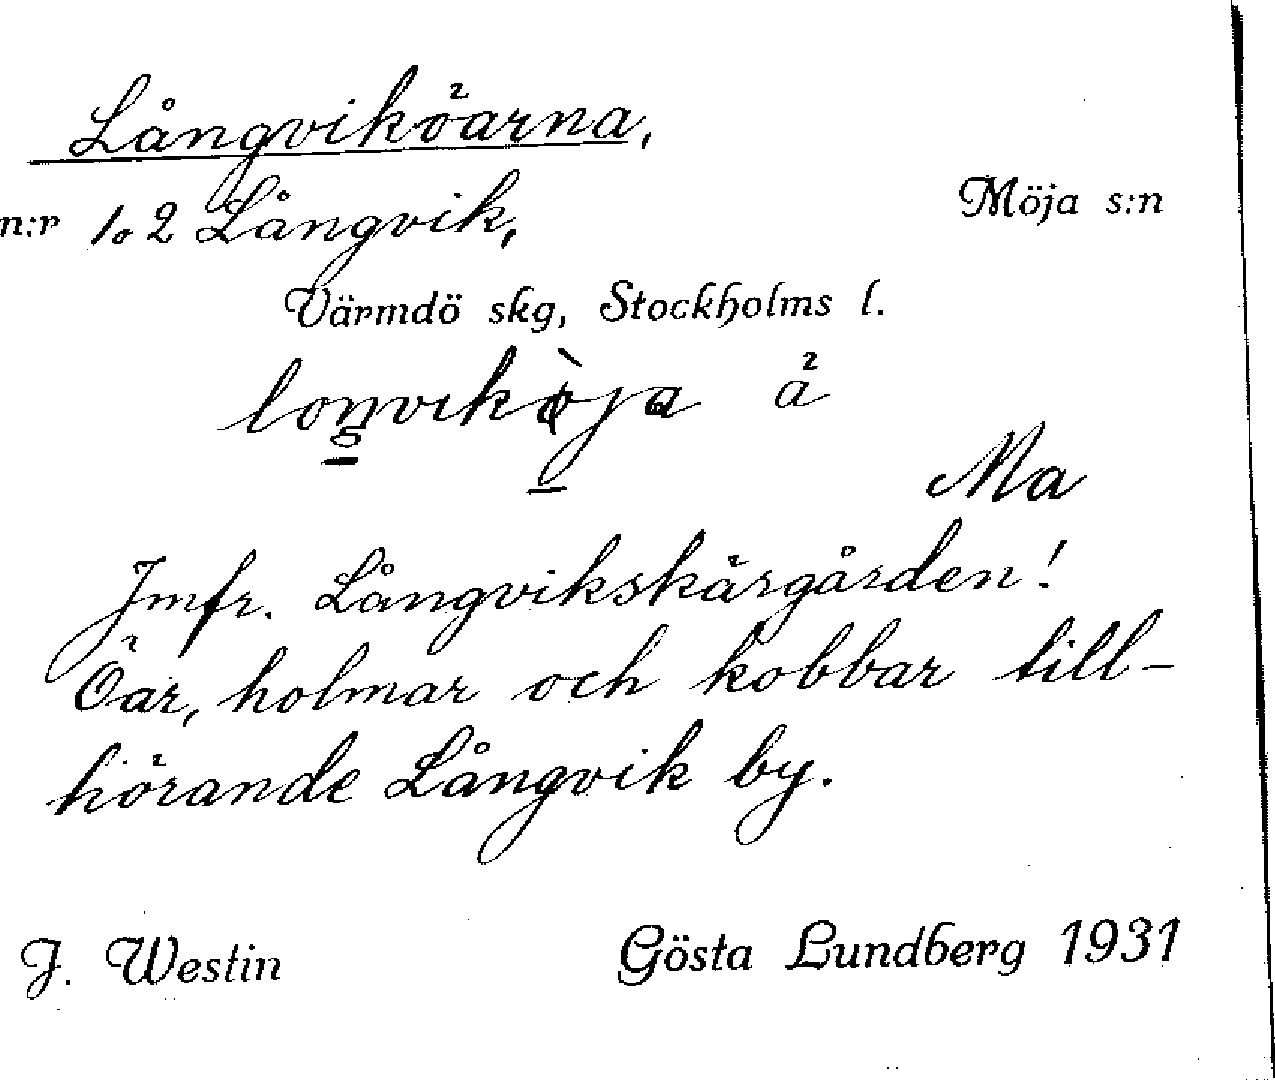 Långviköarna,
n:r 1 o 2 Långvik,
Möja s:n
Värmdö skg, Stockholms l.
å
Ma
Jmfr. Långvikskärgården!
Öar, holmar och kobbar till-
hörande Långvik by.
J. Westin
Gösta Lundberg 1931